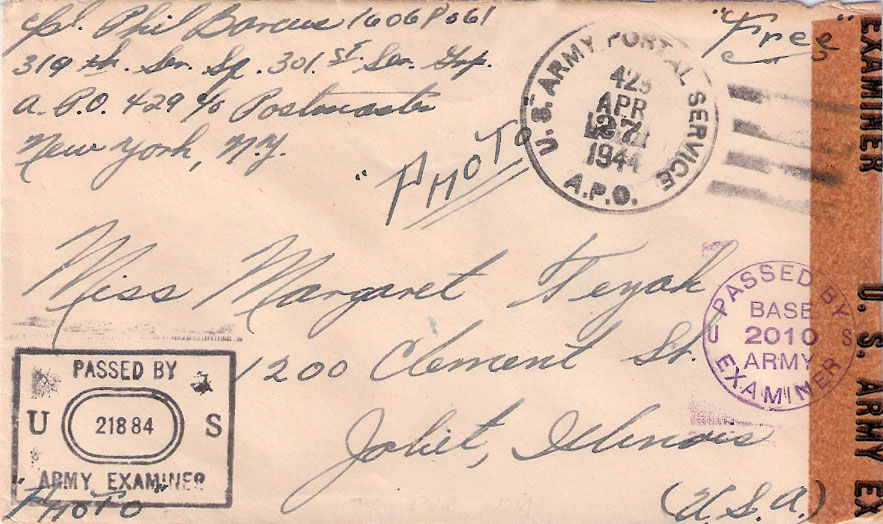 Cpl. Phil Barcus 16068061
319 th. Ser. Sq. 301.ST. Ser. Grp.
A. P.O. 429 c/o Postmaster
New York, N.Y.
"Free"
"PHOTO"
U.S. ARMY POSTAL SERVICE
429
APR
27
1944
A.P.O.
Miss Margaret Tezak
1200 Clement St.
Joliet, Illinois
(U.S.A.)
PASSED BY
BASE
U 2010 S
ARMY
EXAMINER
PASSED BY
U 21884 S
ARMY EXAMINER
"PHOTO"
EXAMINER
U. S. ARMY EX